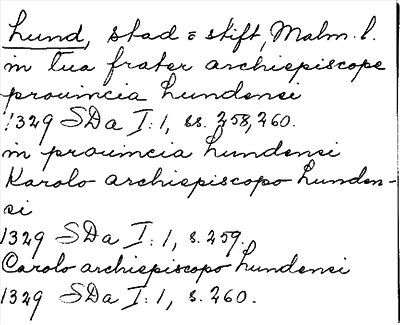 Lund, stad o stift, Malm. l.
in tua frater archiepiscope
prouincia Lundensi
1329 SDa I: 1, ss. 258, 260.
in prouincia Lundensi
Karolo archiepiscopo Lunden-
si
1329 SDa I: 1, s. 259.
Carolo archiepiscopo Lundensi
1329 SDa I: 1, s. 260.